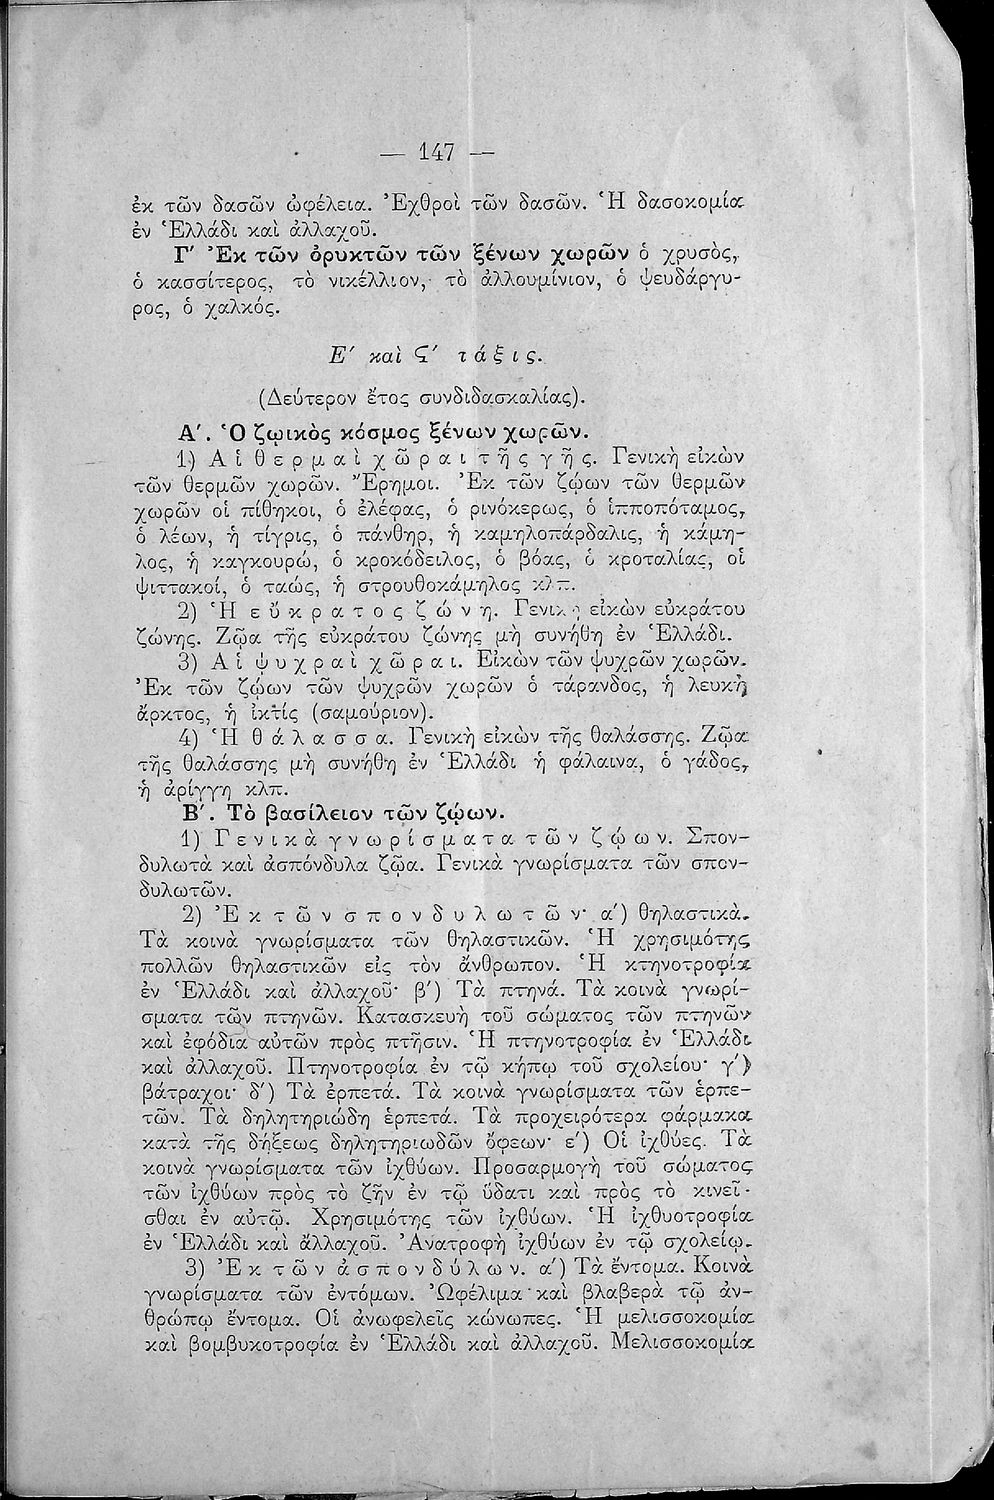 — 147 —
ἐκ τῶν δασῶν ὠφέλεια. Ἐχθροὶ τῶν δασῶν. Ἡ δασοκομία
ἐν Ἑλλάδι καὶ ἀλλαχοῦ.
Γ' Ἐκ τῶν ὀρυκτῶν τῶν ξένων χωρῶν ὁ χρυσὸς,
ὁ κασσίτερος, τὸ νικέλλιον, τὸ ἀλλουμίνιον, ὁ ψευδάργυ-
ρος, ὁ χαλκός.
Ε' καὶ Ϛ' τάξις.
(Δεύτερον ἔτος συνδιδασκαλίας).
Α'. Ὁ ζωικὸς κόσμος ξένων χωρῶν.
1) Αἱ θερμαὶ χῶραι τῆς γῆς. Γενικὴ εἰκὼν
τῶν θερμῶν χωρῶν. Ἔρημοι. Ἐκ τῶν ζῴων τῶν θερμῶν
χωρῶν οἱ πίθηκοι, ὁ ἐλέφας, ὁ ρινόκερως, ὁ ἱπποπόταμος,
ὁ λέων, ἡ τίγρις, ὁ πάνθηρ, ἡ καμηλοπάρδαλις, ἡ κάμη-
λος, ἡ καγκουρώ, ὁ κροκόδειλος, ὁ βόας, ὁ κροταλίας, οἱ
ψιττακοί, ὁ ταώς, ἡ στρουθοκάμηλος κλπ.
2) Ἡ εὔκρατος ζώνη. Γενικὴ εἰκὼν εὐκράτου
ζώνης. Ζῷα τῆς εὐκράτου ζώνης μὴ συνήθη ἐν Ἑλλάδι.
3) Αἱ ψυχραὶ χῶραι. Εἰκὼν τῶν ψυχρῶν χωρῶν.
Ἐκ τῶν ζῴων τῶν ψυχρῶν χωρῶν ὁ τάρανδος, ἡ λευκὴ
ἄρκτος, ἡ ἰκτίς (σαμούριον).
4) Ἡ θάλασσα. Γενικὴ εἰκὼν τῆς θαλάσσης. Ζῷα
τῆς θαλάσσης μὴ συνήθη ἐν Ἑλλάδι ἡ φάλαινα, ὁ γάδος,
ἡ ἀρίγγη κλπ.
Β'. Τὸ βασίλειον τῶν ζῴων.
1) Γενικὰ γνωρίσματα τῶν ζῴων. Σπον-
δυλωτὰ καὶ ἀσπόνδυλα ζῷα. Γενικὰ γνωρίσματα τῶν σπον-
δυλωτῶν.
2) Ἐκ τῶν σπονδυλωτῶν· α') θηλαστικὰ.
Τὰ κοινὰ γνωρίσματα τῶν θηλαστικῶν. Ἡ χρησιμότης
πολλῶν θηλαστικῶν εἰς τὸν ἄνθρωπον. Ἡ κτηνοτροφία
ἐν Ἑλλάδι καὶ ἀλλαχοῦ· β') Τὰ πτηνά. Τὰ κοινὰ γνωρί-
σματα τῶν πτηνῶν. Κατασκευὴ τοῦ σώματος τῶν πτηνῶν
καὶ ἐφόδια αὐτῶν πρὸς πτῆσιν. Ἡ πτηνοτροφία ἐν Ἑλλάδι
καὶ ἀλλαχοῦ. Πτηνοτροφία ἐν τῷ κήπῳ τοῦ σχολείου· γ')
βάτραχοι· δ') Τὰ ἑρπετά. Τὰ κοινὰ γνωρίσματα τῶν ἑρπε-
τῶν. Τὰ δηλητηριώδη ἑρπετά. Τὰ προχειρότερα φάρμακα
κατὰ τῆς δήξεως δηλητηριωδῶν ὄφεων· ε') Οἱ ἰχθύες. Τὰ
κοινὰ γνωρίσματα τῶν ἰχθύων. Προσαρμογὴ τοῦ σώματος
τῶν ἰχθύων πρὸς τὸ ζῆν ἐν τῷ ὕδατι καὶ πρὸς τὸ κινεῖ-
σθαι ἐν αὐτῷ. Χρησιμότης τῶν ἰχθύων. Ἡ ἰχθυοτροφία
ἐν Ἑλλάδι καὶ ἀλλαχοῦ. Ἀνατροφὴ ἰχθύων ἐν τῷ σχολείῳ.
3) Ἐκ τῶν ἀσπονδύλων. α') Τὰ ἔντομα. Κοινὰ
γνωρίσματα τῶν ἐντόμων. Ὠφέλιμα καὶ βλαβερὰ τῷ ἀν-
θρώπῳ ἔντομα. Οἱ ἀνωφελεῖς κώνωπες. Ἡ μελισσοκομία
καὶ βομβυκοτροφία ἐν Ἑλλάδι καὶ ἀλλαχοῦ. Μελισσοκομία